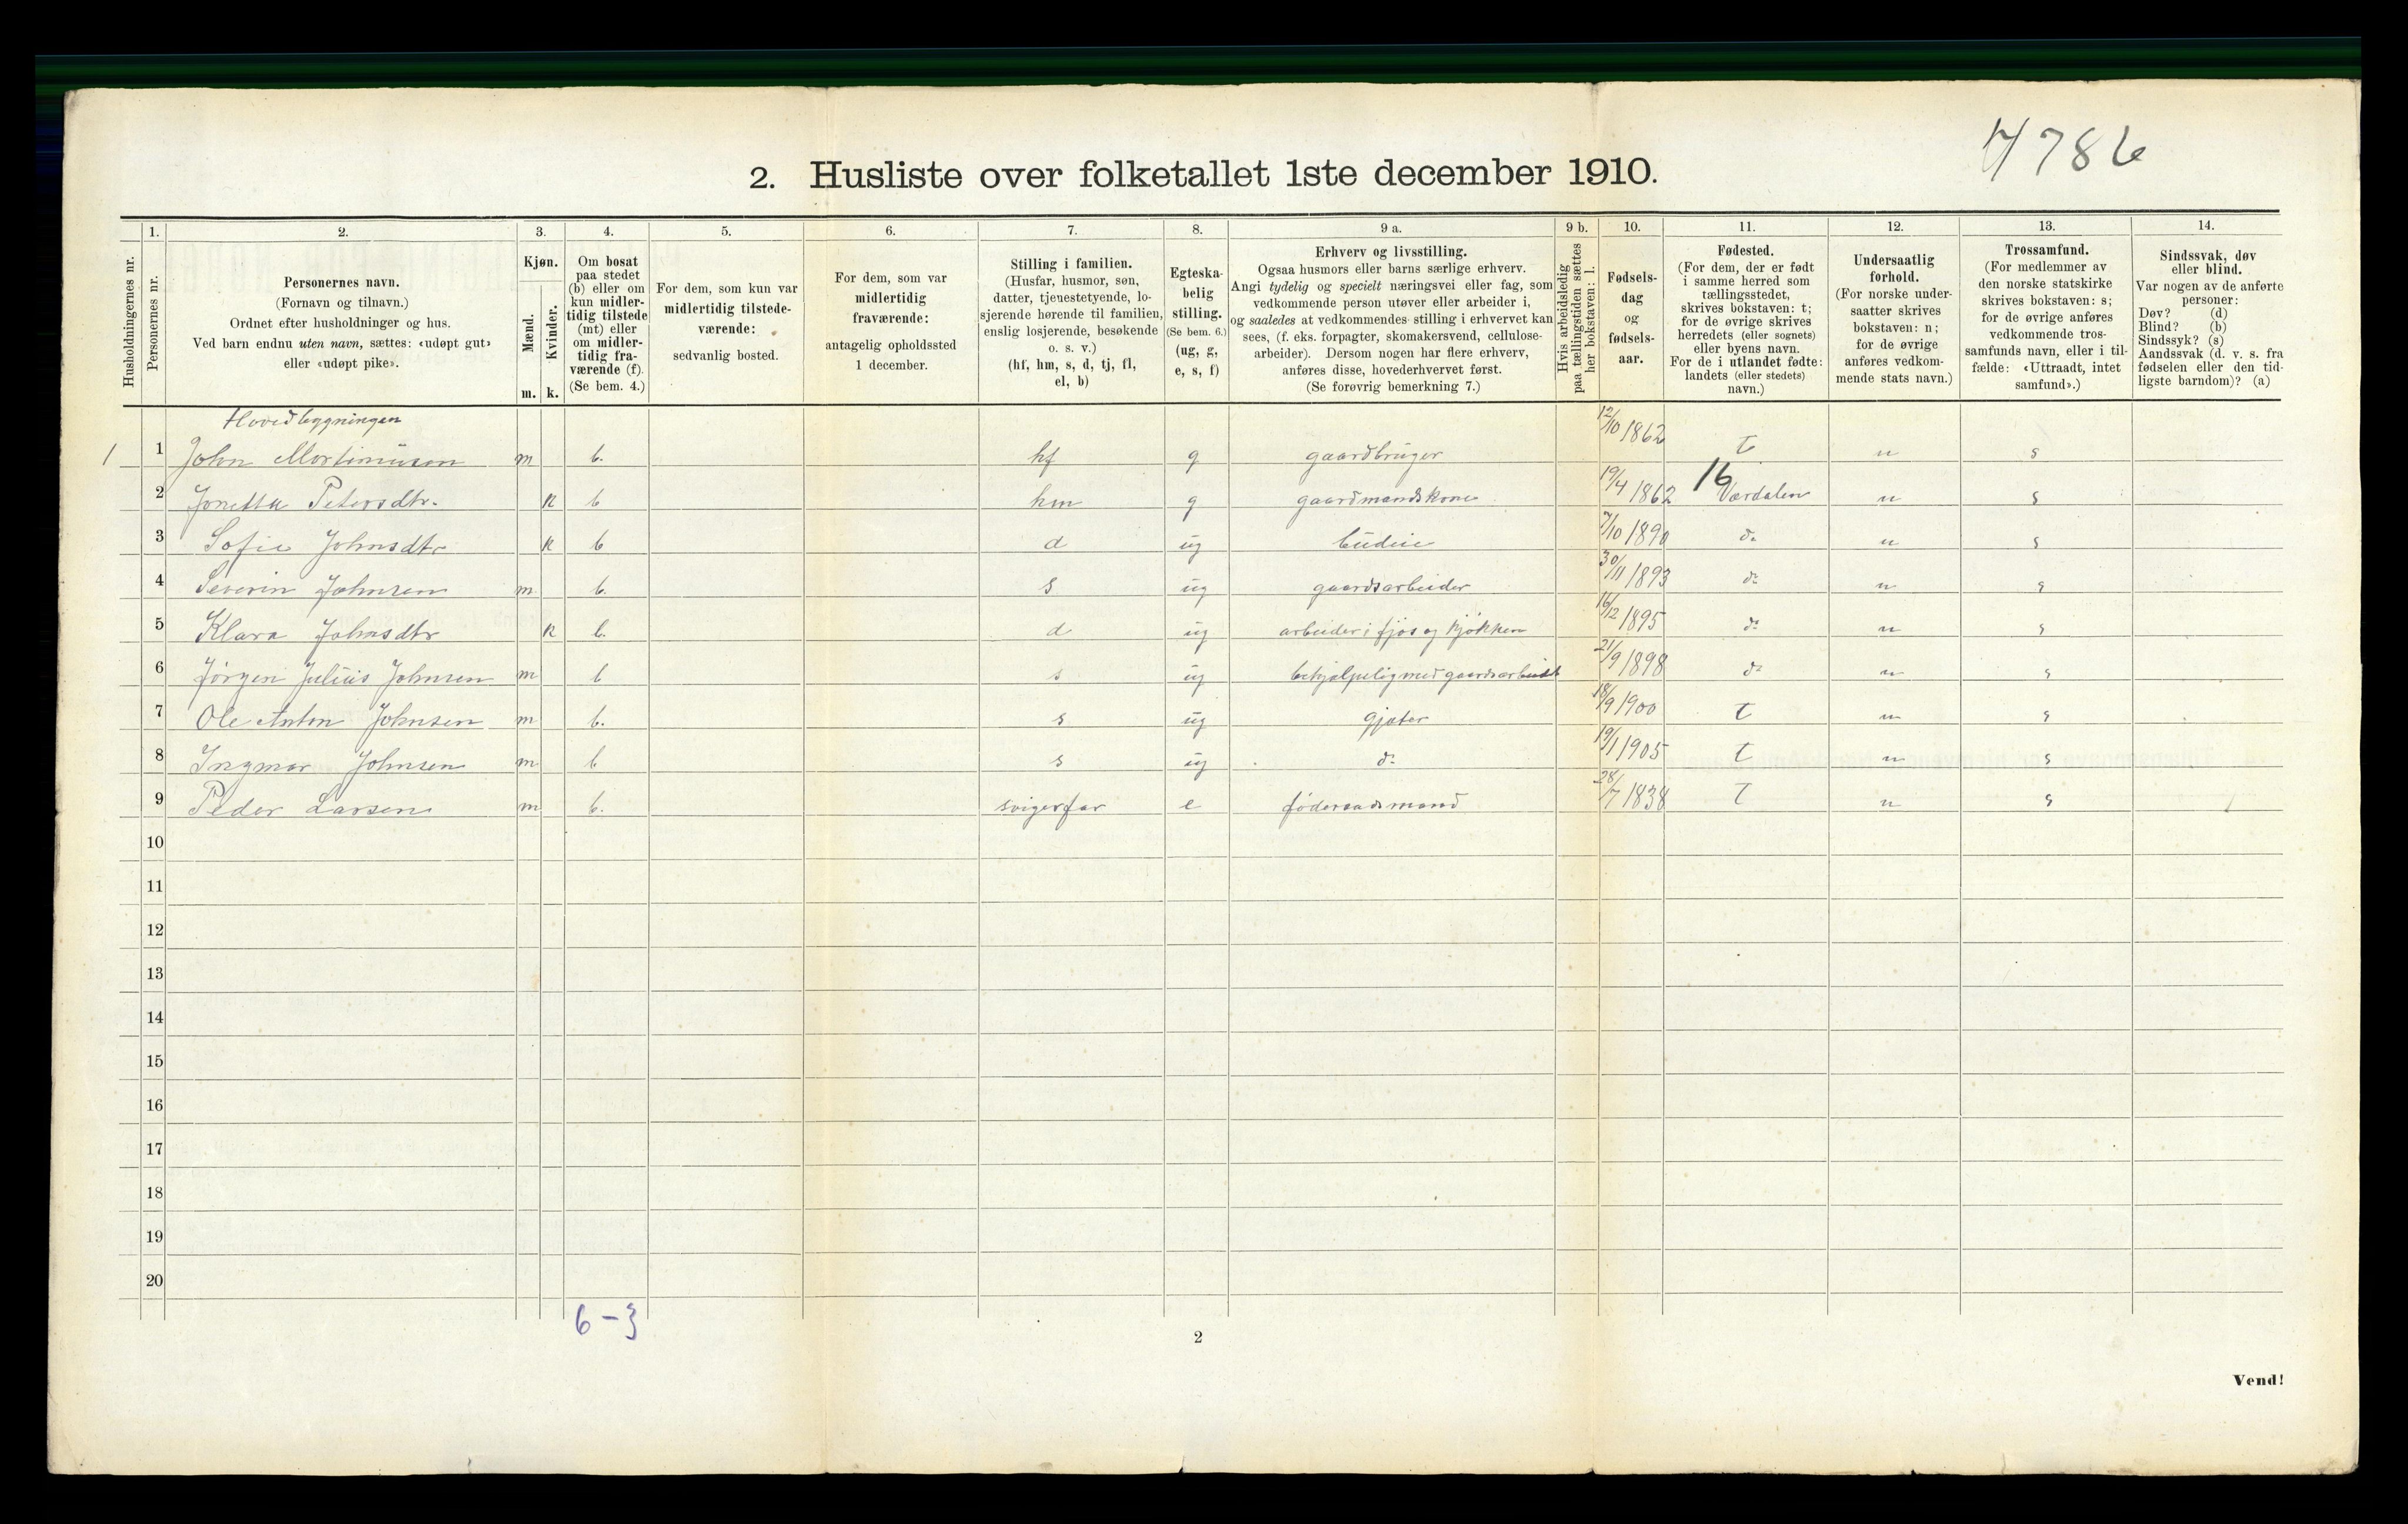 7786
2. Husliste over folketallet 1ste december 1910.
Husholdningernes nr.
1. Personernes nr.
2. Personernes navn. (Fornavn og tilnavn.) Ordnet efter husholdninger og hus. Ved barn endnu uten navn, sættes: «udøpt gut» eller «udøpt pike».
3. Kjøn. Mænd. m. Kvinder. k.
4. Om bosat paa stedet (b) eller om kun midlertidig tilstede (mt) eller om midlertidig fraværende (f). (Se bem. 4.)
5. For dem, som kun var midlertidig tilstedeværende: sedvanlig bosted.
6. For dem, som var midlertidig fraværende: antagelig opholdssted 1 december.
7. Stilling i familien. (Husfar, husmor, søn, datter, tjenestetyende, losjerende hørende til familien, enslig losjerende, besøkende o. s. v.) (hf, hm, s, d, tj, fl, el, b)
8. Egteskabelig stilling. (Se bem. 6.) (ug, g, e, s, f)
9 a. Erhverv og livsstilling. Ogsaa husmors eller barns særlige erhverv. Angi tydelig og specielt næringsvei eller fag, som vedkommende person utøver eller arbeider i, og saaledes at vedkommendes stilling i erhvervet kan sees, (f. eks. forpagter, skomakersvend, cellulosearbeider). Dersom nogen har flere erhverv, anføres disse, hovederhvervet først. (Se forøvrig bemerkning 7.)
9 b. Hvis arbeidsledig paa tællingstiden sættes her bokstaven: l.
10. Fødselsdag og fødselsaar.
11. Fødested. (For dem, der er født i samme herred som tællingsstedet, skrives bokstaven: t; for de øvrige skrives herredets (eller sognets) eller byens navn. For de i utlandet fødte: landets (eller stedets) navn.)
12. Undersaatlig forhold. (For norske undersaatter skrives bokstaven: n; for de øvrige anføres vedkommende stats navn.)
13. Trossamfund. (For medlemmer av den norske statskirke skrives bokstaven: s; for de øvrige anføres vedkommende trossamfunds navn, eller i tilfælde: «Uttraadt, intet samfund».)
14. Sindssvak, døv eller blind. Var nogen av de anførte personer: Døv? (d) Blind? (b) Sindssyk? (s) Aandssvak (d. v. s. fra fødselen eller den tidligste barndom)? (a)
Hovedbygningen
1 1 John Mortinusen m b. hf g gaardbruger 12/10 1862 t n s
16
2 Jonetta Petersdtr. k b hm g gaardmandskone 19/4 1862 Værdalen n s
3 Sofie Johnsdtr k b d ug budeie 7/10 1890 do n s
4 Severin Johnsen m b. s ug gaardsarbeider 30/11 1893 do n s
5 Klara Johnsdtr k b. d ug arbeider i fjøs og kjøkken 16/12 1895 do n s
6 Jørgen Julius Johnsen m b s ug behjælpelig med gaardsarbeidet 21/9 1898 do n s
7 Ole Anton Johnsen m b. s ug gjæter 18/9 1900 t n s
8 Ingmar Johnsen m b s ug do 19/1 1905 t n s
9 Peder Larsen m b. svigerfar e føderaadsmand 28/7 1838 t n s
10
11
12
13
14
15
16
17
18
19
20
6-3
2
Vend!